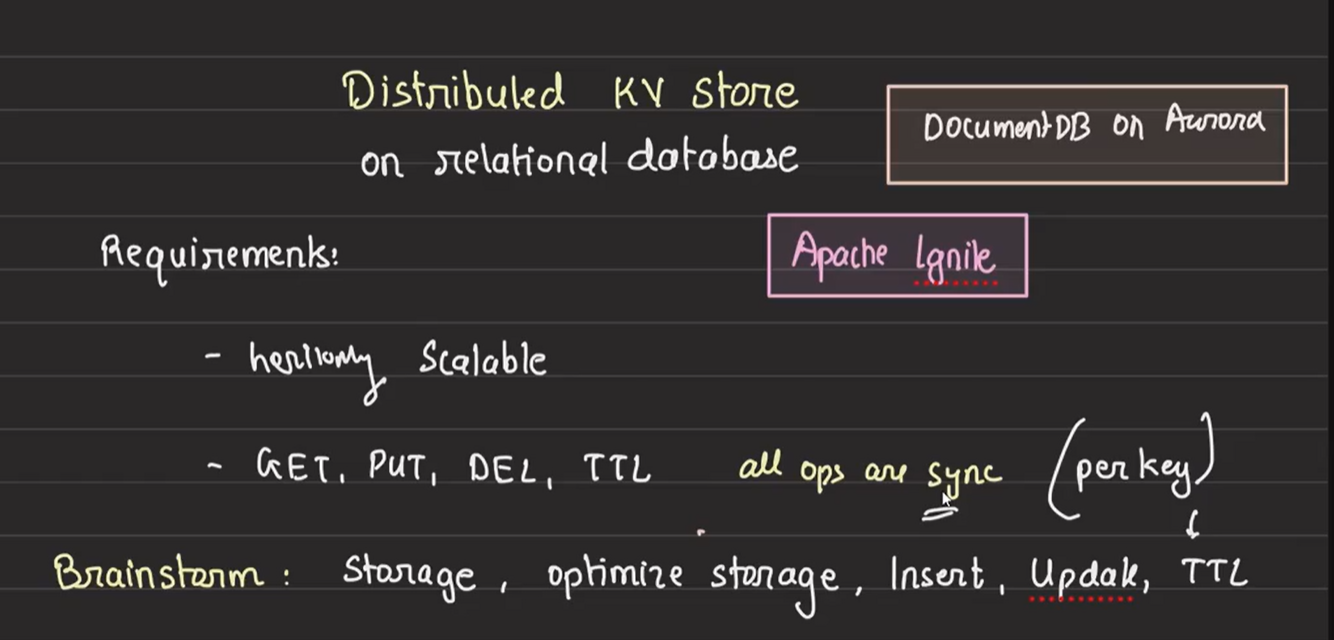 Distributed KV Store
on relational database
DocumentDB on Aurora
Requirements:
Apache Ignite
- Scalable
- GET, PUT, DEL, TTL all ops are sync (per key)
Brainstorm: Storage, optimize storage, Insert, Update, TTL